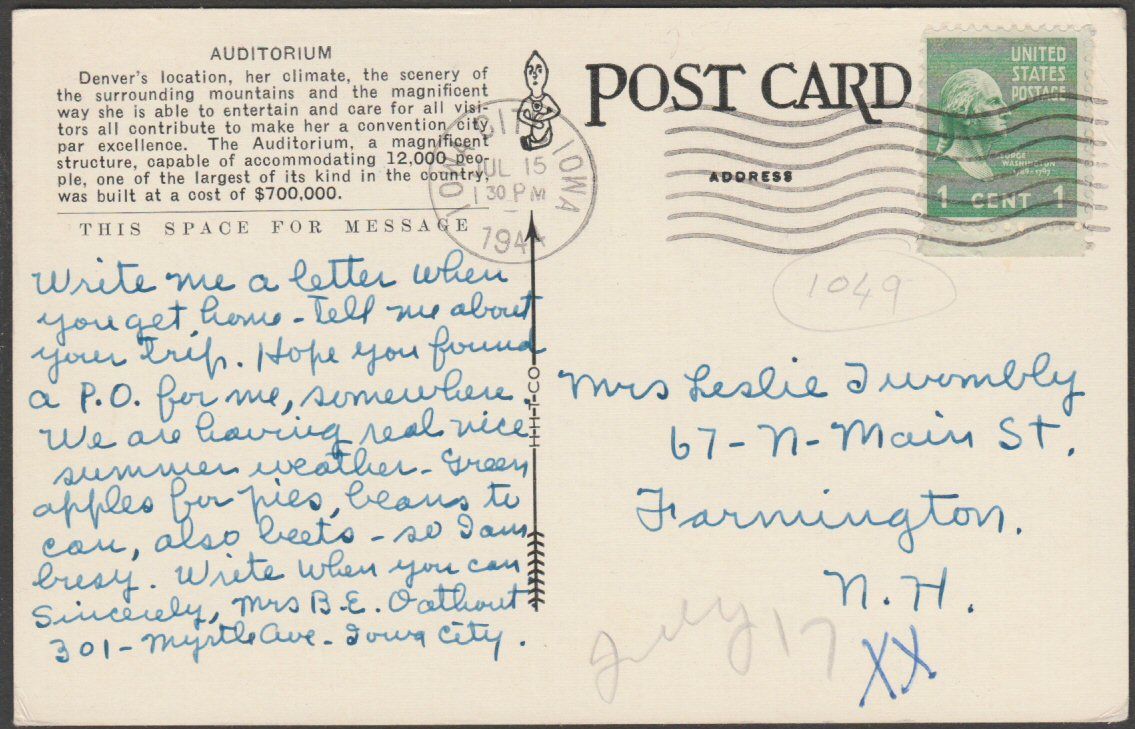 AUDITORIUM
Denver's location, her climate, the scenery of
the surrounding mountains and the magnificent
way she is able to entertain and care for all visi-
tors all contribute to make her a convention city
par excellence. The Auditorium, a magnificent
structure, capable of accommodating 12,000 peo-
ple, one of the largest of its kind in the country,
was built at a cost of $700,000.
THIS SPACE FOR MESSAGE
Write me a letter when
you get home - Tell me about
your trip. Hope you found
a P.O. for me, somewhere.
We are having real nice
summer weather - Green
apples for pies, beans to
can, also beets - so I am
busy. Write when you can
Sincerely, Mrs B.E. Oathout
301 - Myrtle Ave - Iowa City.
H-H-T-CO
IOWA CITY IOWA
JUL 15
1 30 PM
1944
POST CARD
ADDRESS
UNITED
STATES
POSTAGE
GEORGE
WASHINGTON
1789-1797
1 CENT 1
1049
Mrs Leslie Twombly
67 - N - Main St.
Farmington.
N. H.
July 17
XX